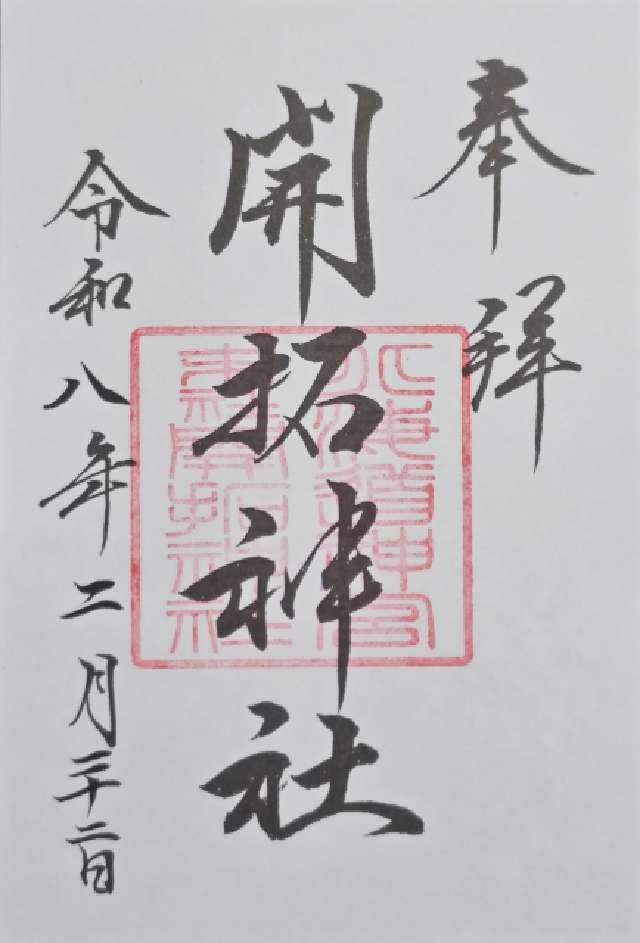 奉拝
開拓神社
令和八年二月二十二日